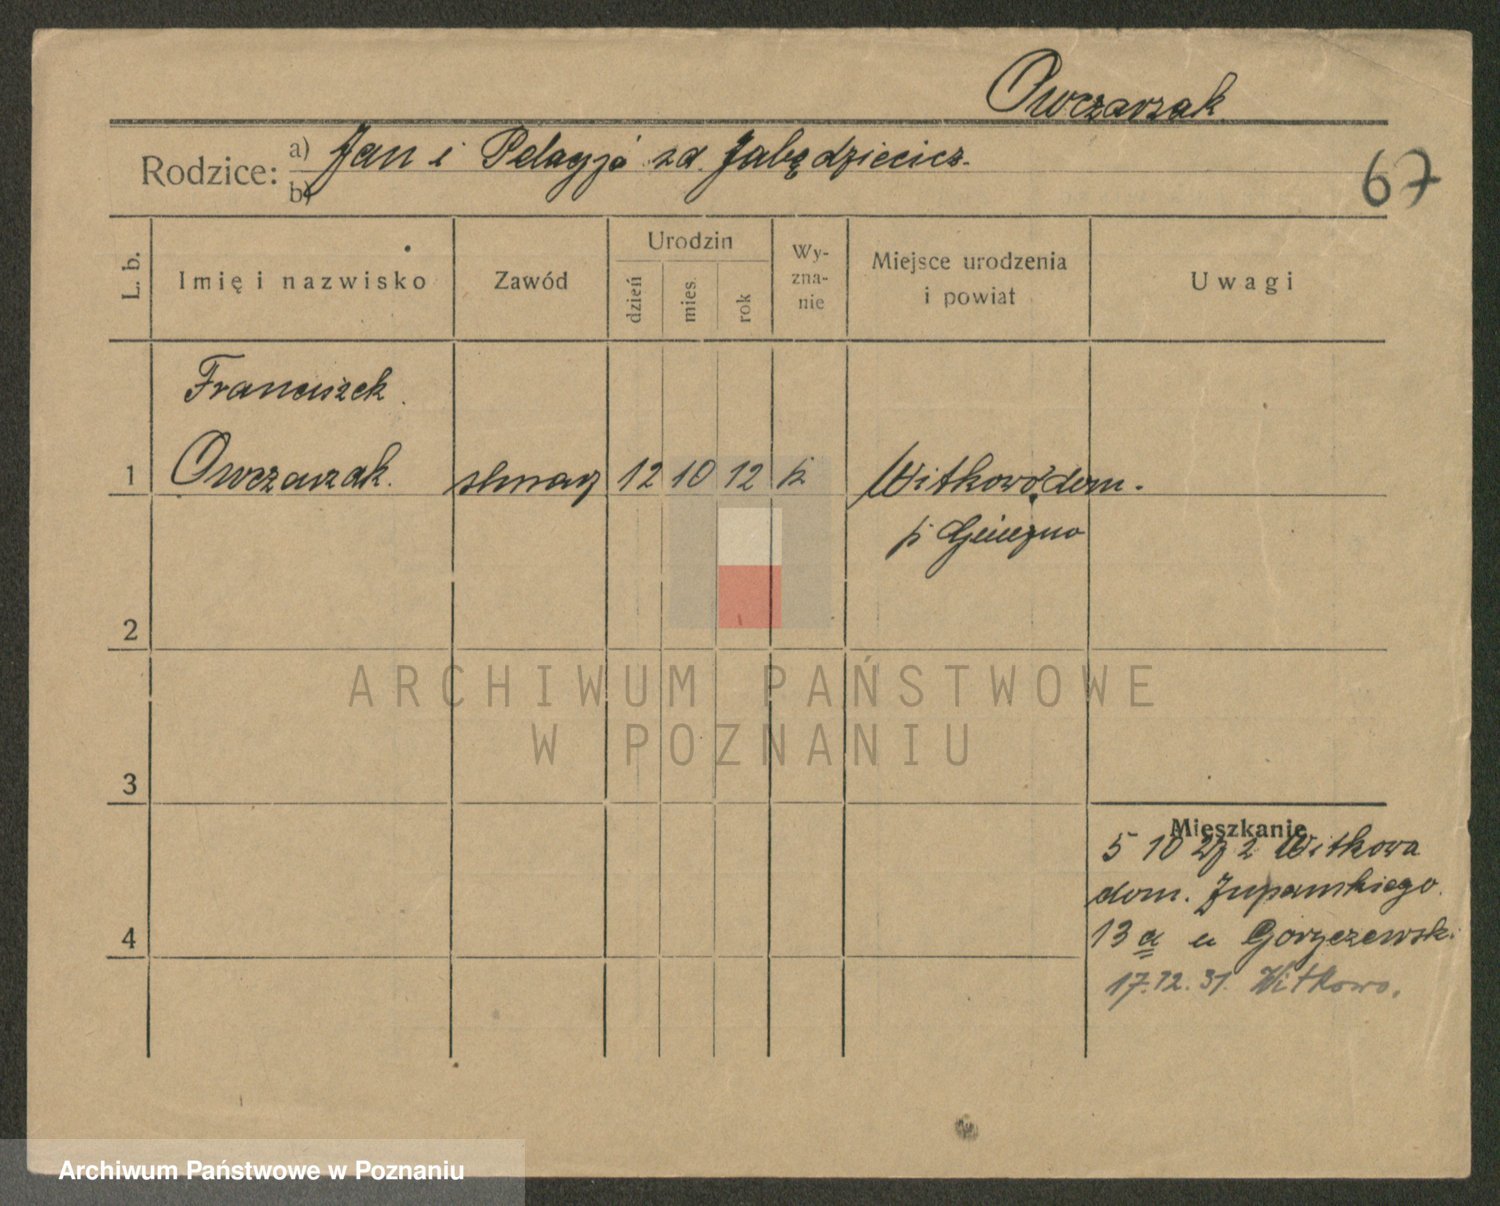 Owczarzak
Rodzice: a) Jan i Pelagja zd.
b)
67
L. b.
Imię i nazwisko
Zawód
Urodzin
dzień
mies.
rok
Wy-
zna-
nie
Miejsce urodzenia
i powiat
Uwagi
Franciszek
1 Owczarzak. 12 10 12 k Witkowo dom.
p Gniezno
2
3
4
Mieszkanie
5 10 Witkowa
dom. Żupańskiego
13 a u Gorzczewsk.
17.12.31. Witkowo.
ARCHIWUM PAŃSTWOWE
W POZNANIU
Archiwum Państwowe w Poznaniu